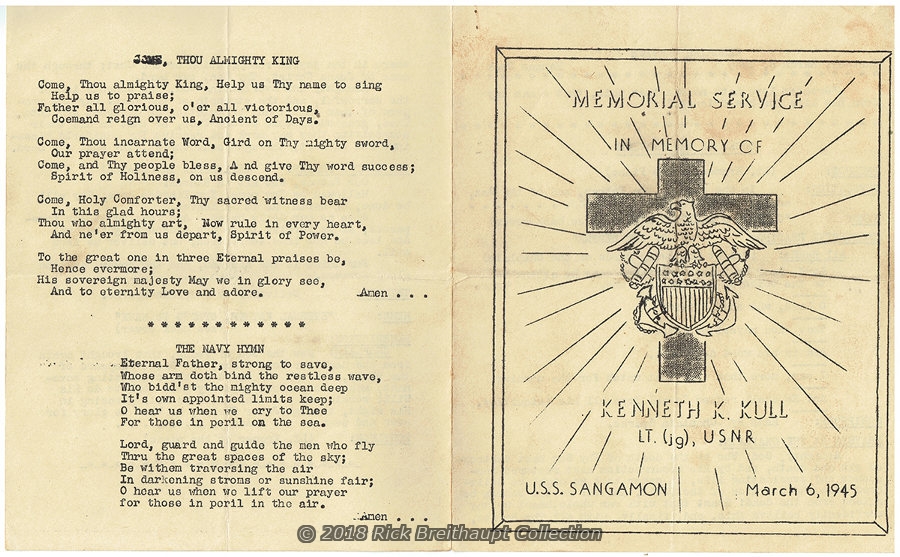 COME, THOU ALMIGHTY KING
Come, Thou almighty King, Help us Thy name to sing
Help us to praise;
Father all glorious, o'er all victorious,
Coemand reign over us, Ancient of Days.
Come, Thou incarnate Word, Gird on Thy mighty sword,
Our prayer attend;
Come, and Thy people bless, And give Thy word success;
Spirit of Holiness, on us descend.
Come, Holy Comforter, Thy sacred witness bear
In this glad hours;
Thou who almighty art, Now rule in every heart,
And ne'er from us depart, Spirit of Power.
To the great one in three Eternal praises be,
Hence evermore;
His sovereign majesty May we in glory see,
And to eternity Love and adore. Amen . . .
* * * * * * * * * * * *
THE NAVY HYMN
Eternal Father, strong to save,
Whose arm doth bind the restless wave,
Who bidd'st the mighty ocean deep
It's own appointed limits keep;
O hear us when we cry to Thee
For those in peril on the sea.
Lord, guard and guide the men who fly
Thru the great spaces of the sky;
Be withem traversing the air
In darkening stroms or sunshine fair;
O hear us when we lift our prayer
for those in peril in the air.
Amen . . .
MEMORIAL SERVICE
IN MEMORY OF
KENNETH K. KULL
LT. (jg), USNR
U.S.S. SANGAMON March 6, 1945
© 2018 Rick Breithaupt Collection